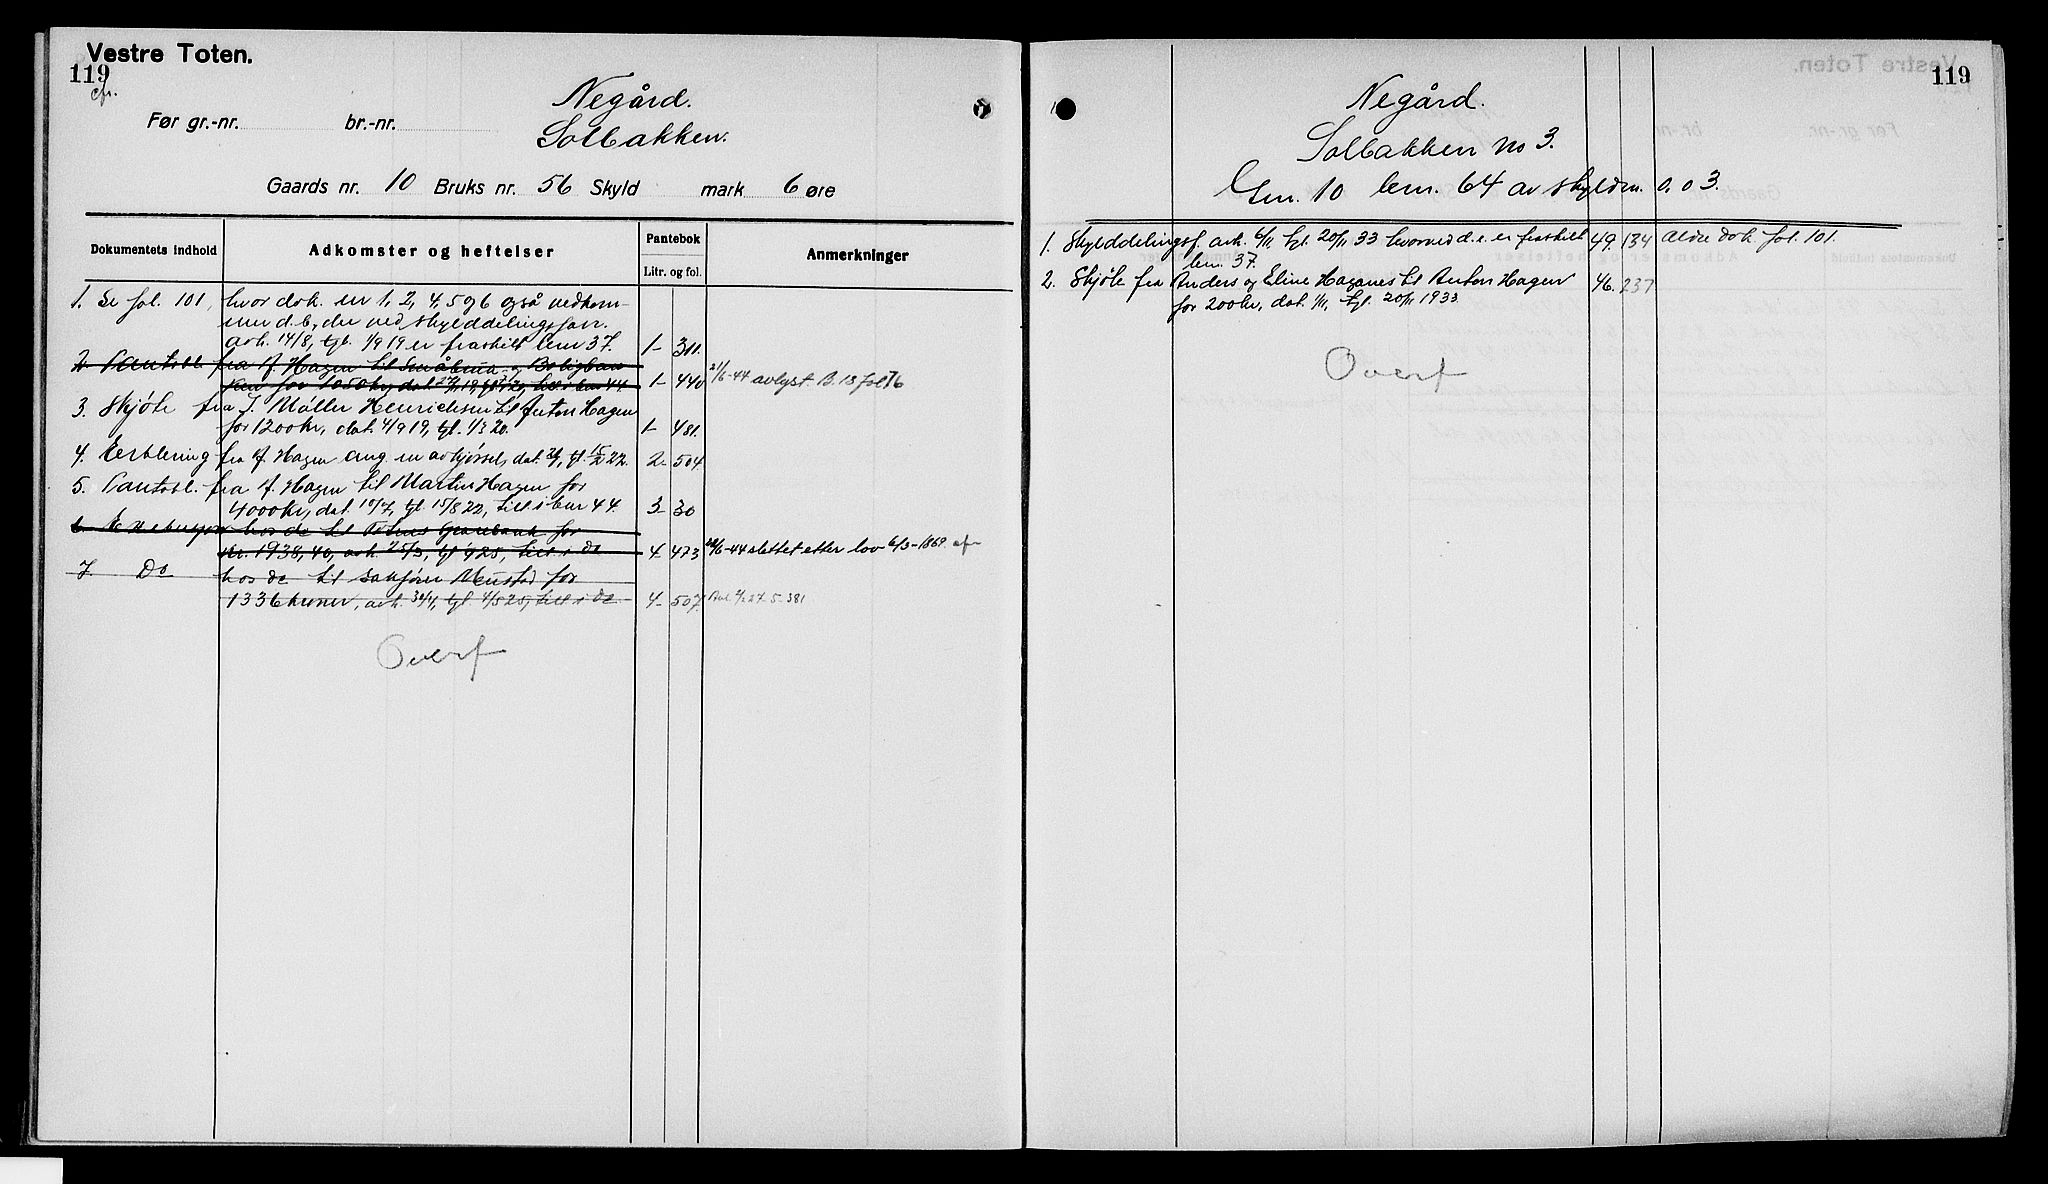 Vestre Toten.
119
cfr.
Negård.
Før gr.-nr. br.-nr.
Solbakken.
Gaards nr. 10 Bruks nr. 56 Skyld mark 6 øre
Dokumentets indhold Adkomster og heftelser Pantebok Litr. og fol. Anmerkninger
1. Se fol. 101, hvor dok. nr 1, 2, 4, 5 og 6 også vedkom-
mer d. b., der ved skylddelingsforr.
avh. 14/8, tgl. 1/9 19 er fraskilt bnr 37. 1- 311.
2. Pantobl. fra A. Hagen til Småbruk og Boligban
ken for 1050 kr, dat. tgl. 20, till. i bnr 44 1- 440 21/6-44 avlyst B. 13 fol 76
3. Skjøte fra J. Møller Henrichsen til Anton Hagen
for 1200 kr, dat. 4/9 19, tgl. 1/3 20. 1- 481.
4. Erklering fra A. Hagen ang. en avkjørsel, dat. tgl. 15/2 22. 2- 504.
5. Pantobl. fra A. Hagen til Martin Hagen for
4000 kr, dat. 10/7, tgl. 15/8 22, till. i bnr 44. 3- 30
6. hos do til Totens Sparebank for
kr. 1938,40, avh. 25/3, tgl. 4/4 25, till. i do 4- 423 21/6-44 slettet etter lov 6/3-1869. cfr
7. Do hos do til sakfører Meustad for
1336 kroner, avh. 30/4, tgl. 4/5 25, till. i do. 4- 507. Avl. 4/2 27. 5-381
Overf
119
Negård.
Solbakken no 3.
Gnr. 10 bnr. 64 av skyldm. 0.03.
1. Skylddelingsf. avh. 6/11 tgl. 20/11 33 hvorved d. e. er fraskilt 49. 134 Ældre dok. fol. 101.
bnr. 37.
2. Skjøte fra Anders og Eline Haganes til Anton Hagen 46. 237
for 200 kr, dat. 1/11, tgl. 20/11 1933
Overf